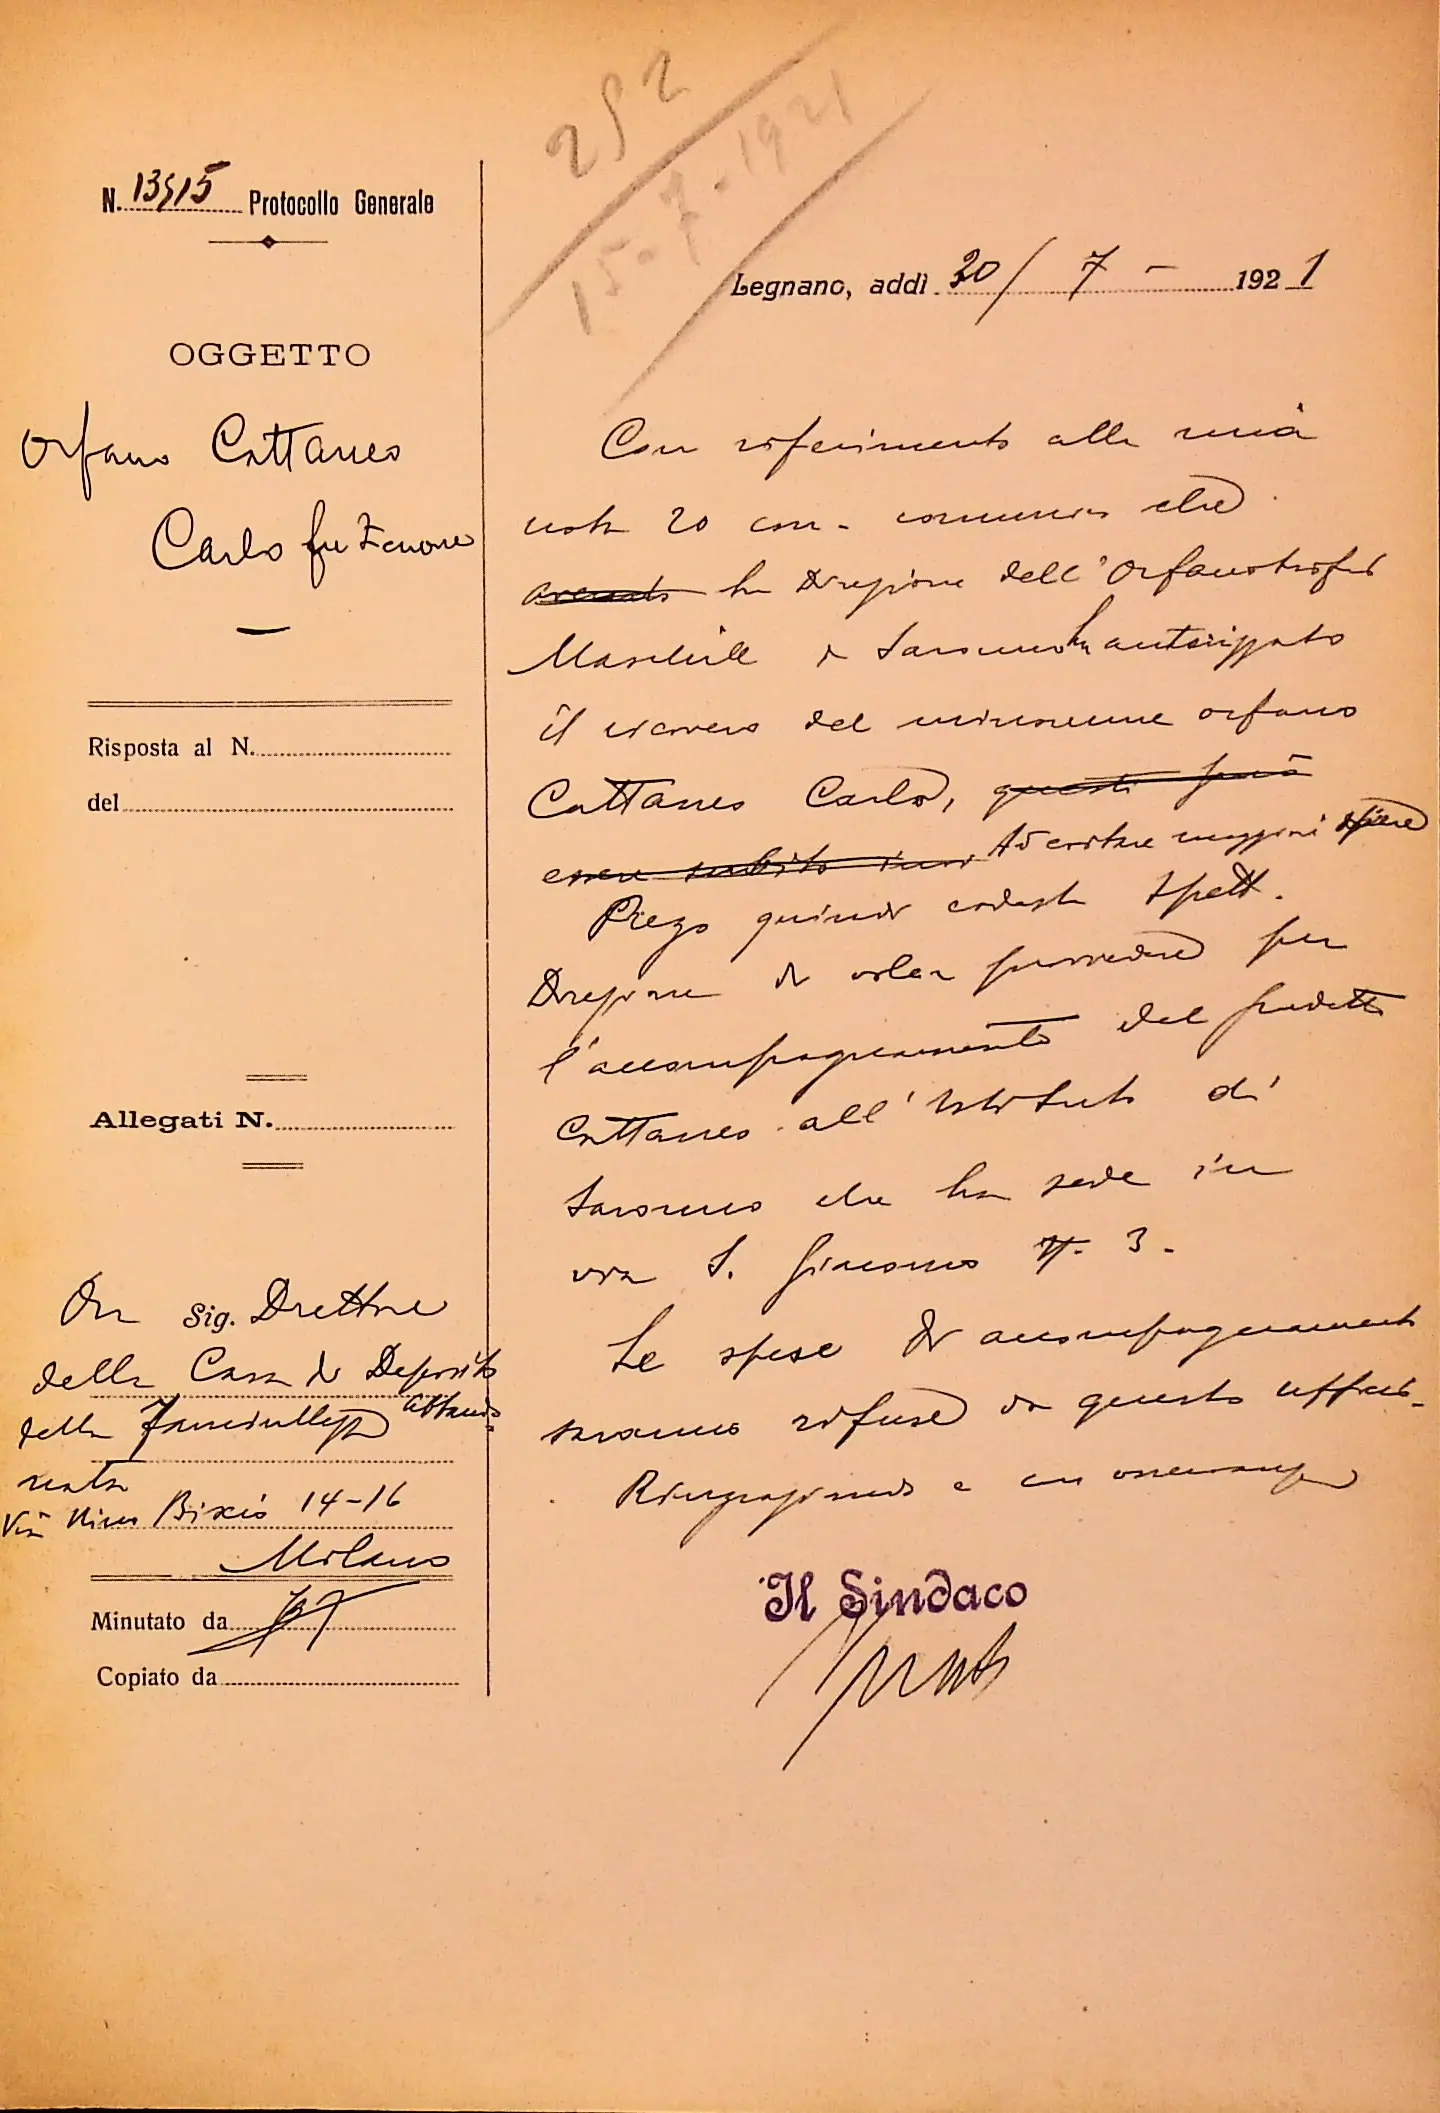 252
15-7-1921
N. 13515 Protocollo Generale
Legnano, addì 30/7 - 1921
OGGETTO
Orfano Cattaneo
Carlo fu Zenone
Risposta al N.
del
Allegati N.
On Sig. Direttore
della Casa di Deposito
della Fanciullezza abbando
nata
Via Nino Bixio 14-16
Milano
Minutato da
Copiato da
Con riferimento alla mia
nota 20 corr. comunico che
avendo la Direzione dell'Orfanotrofio
Maschile di Saronno ha autorizzato
il ricovero del minorenne orfano
Cattaneo Carlo, questi può
essere subito Ad evitare maggiori spese
Prego quindi codesta Spett.
Direzione di voler provvedere per
l'accompagnamento del predetto
Cattaneo all'Istituto di
Saronno che ha sede in
via S. Giacomo N. 3.
Le spese di accompagnamento
saranno rifuse da questo ufficio.
Ringraziando e con osservanza
Il Sindaco